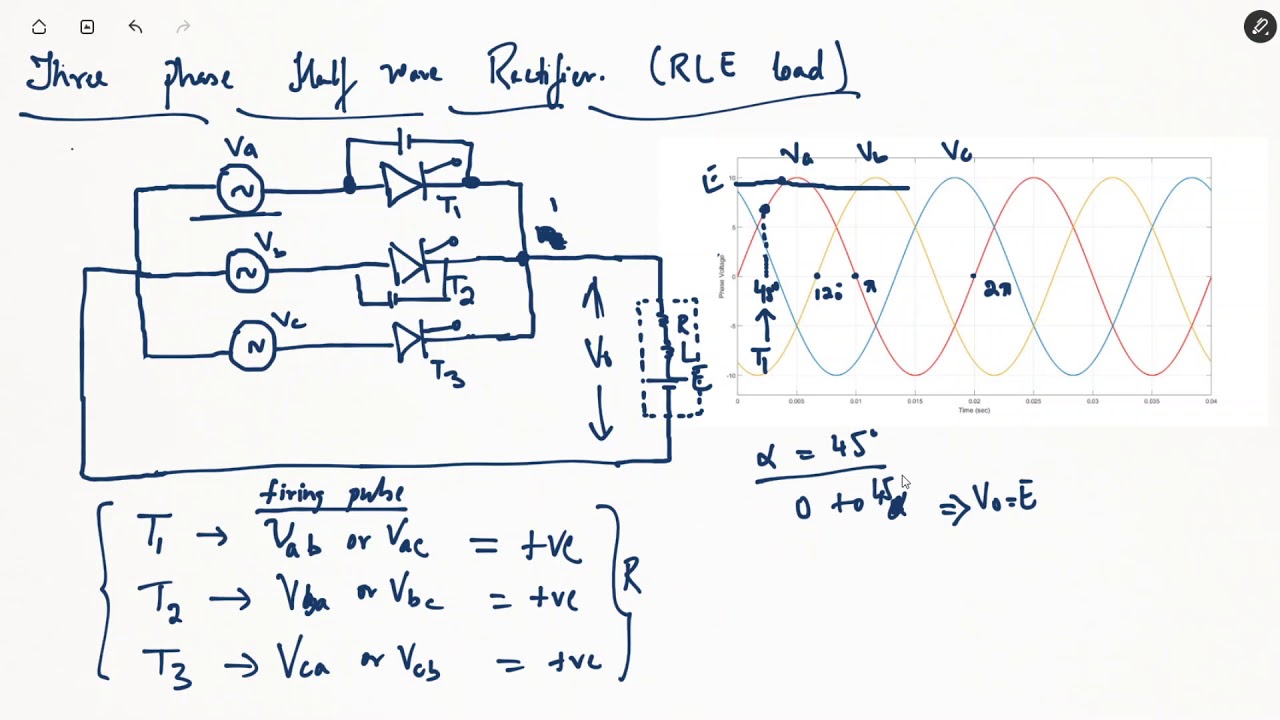 Three phase Half wave Rectifier. (RLE load)
Va
T1
Vb
T2
Vc
T3
V0
R
L
E
Va Vb Vc
E
10
5
0
-5
-10
Phase Voltage
45°
120
π
2π
T1
0 0.005 0.01 0.015 0.02 0.025 0.03 0.035 0.04
Time (sec)
α = 45°
0 to 45 => V0=E
firing pulse
T1 → Vab or Vac = +ve
T2 → Vba or Vbc = +ve
T3 → Vca or Vcb = +ve
R